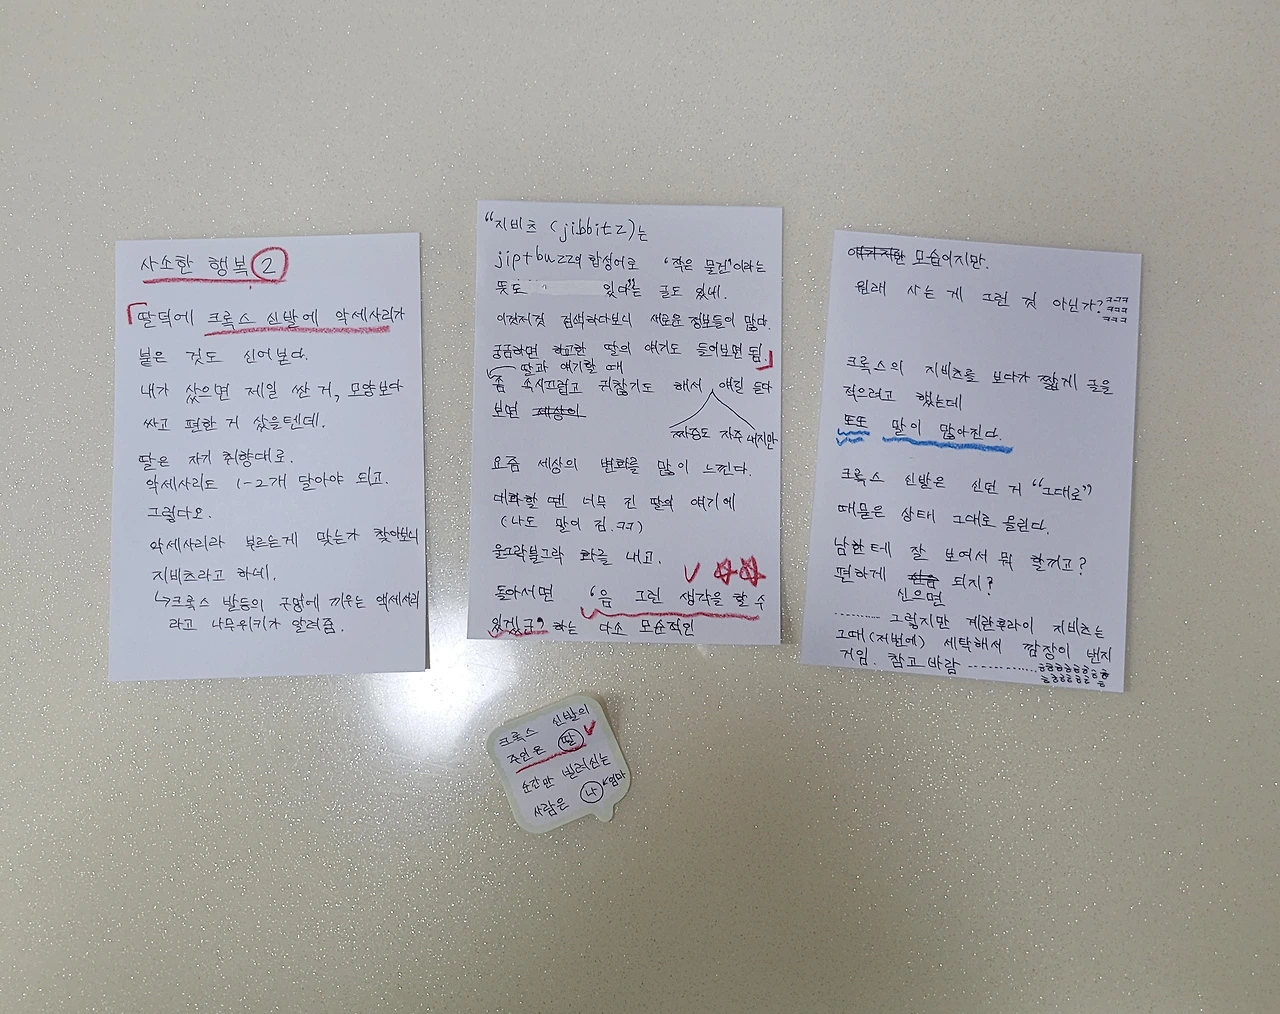 사소한 행복 ②
「딸덕에 크록스 신발에 악세사리가
붙은 것도 신어본다.
내가 샀으면 제일 싼 거, 모양보다
싸고 편한 거 샀을텐데.
딸은 자기 취향대로.
악세사리도 1-2개 달아야 되고.
그렇다오.
악세사리라 부르는게 맞는가 찾아보니
지비츠라고 하네.
↳크록스 발등의 구멍에 끼우는 액세서리
라고 나무위키가 알려줌.
“지비츠 (jibbitz)는
jip+buzz의 합성어로 '작은 물건'이라는
뜻도 있다”는 글도 있네.
이것저것 검색하다보니 새로운 정보들이 많다.
궁금하면 학교한 딸의 얘기도 들어보면 됨.」
딸과 얘기할 때
좀 속시끄럽고 귀찮기도 해서, 얘길 듣다
보면 세상이
짜증도 자주 내지만
요즘 세상의 변화를 많이 느낀다.
대화할 땐 너무 긴 딸의 얘기에
(나도 말이 김.ㅋㅋ)
울그락불그락 화를 내고.
돌아서면 '음 그런 생각을 할 수
있겠군' 하는 다소 모순적인
모습이지만.
원래 사는 게 그런 것 아닌가? ㅋㅋㅋ
ㅋㅋㅋ
ㅋㅋㅋ
크록스의 지비츠를 보다가 짧게 글을
적으려고 했는데
또또 말이 많아진다.
크록스 신발은 신던 거 “그대로”
때묻은 상태 그대로 올린다.
남한테 잘 보여서 뭐 할끼고?
편하게 신음 되지?
신으면
그렇지만 계란후라이 지비츠는
그때(저번에) 세탁해서 깜장이 뺀지
거임. 참고바람 ㅎㅎㅎㅎㅎㅎㅎ
ㅎㅎㅎㅎㅎㅎ
크록스 신발의
주인은 딸
순간만 빌려신는
사람은 나 ↖엄마